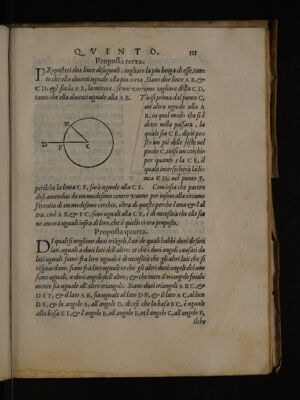 QVINTO. III
Proposta terza.
PRoposteci due linee disuguali, tagliare la più lunga di esse, tanto
che ella diventi uguale alla più corta. Siano due linee A B, &
C D, & sia la A B, la minore, se noi vorremo tagliare della C D,
tanto che ella diventi uguale alla A B. Tirisi prima dal punto C,
una altra uguale alla A
B, in quel modo che si è
detto nella passata, la
quale sia C E, dipoi posto
un piè delle seste nel
punto C, tirisi un cerchio
per quanto è la C E, il
quale intersecherà la linea
C D, nel punto F,
perilche la linea C F, sarà uguale alla C E. Conciosia che partendosi
amendue da un medesimo centro vanno per insino alla circunferentia
di un medesimo cerchio, oltra di questo perche l'una & l'altra,
cioè A B, & F C, sono uguali alla C E, è di necessità che elle siano
ancora uguali infra di loro: che è quello ci era proposto.
Proposta quarta.
DI quali si voglino duoi triangoli, un de quali habbi duoi de suoi
lati, uguali a duoi lati dell'altro: et che i duoi angoli causati da
lati uguali siano fra loro uguali è di necessità che gli altri lati che si
risguardano, siano fra loro uguali et che gli altri duoi angoli del uno
siano uguali, a duoi angoli dell'altro; & che tutto il triangolo finalmente
sia uguale all'altro triangolo. Siano duoi triangoli A B C, &
D E F, & il lato A B, sia uguale al lato D E, & il lato A C, al lato
D F, & lo angolo A, all'angolo D, dicesi che la basa B C, è uguale
alla basa E F, & l'angolo B, all'angolo E, et l'angolo C, all'angolo F,
ilche
D F C E